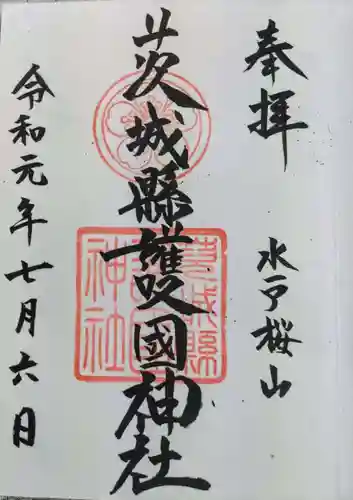 奉拝
水戸桜山
茨城縣護國神社
茨城縣
護國
神社
令和元年七月六日